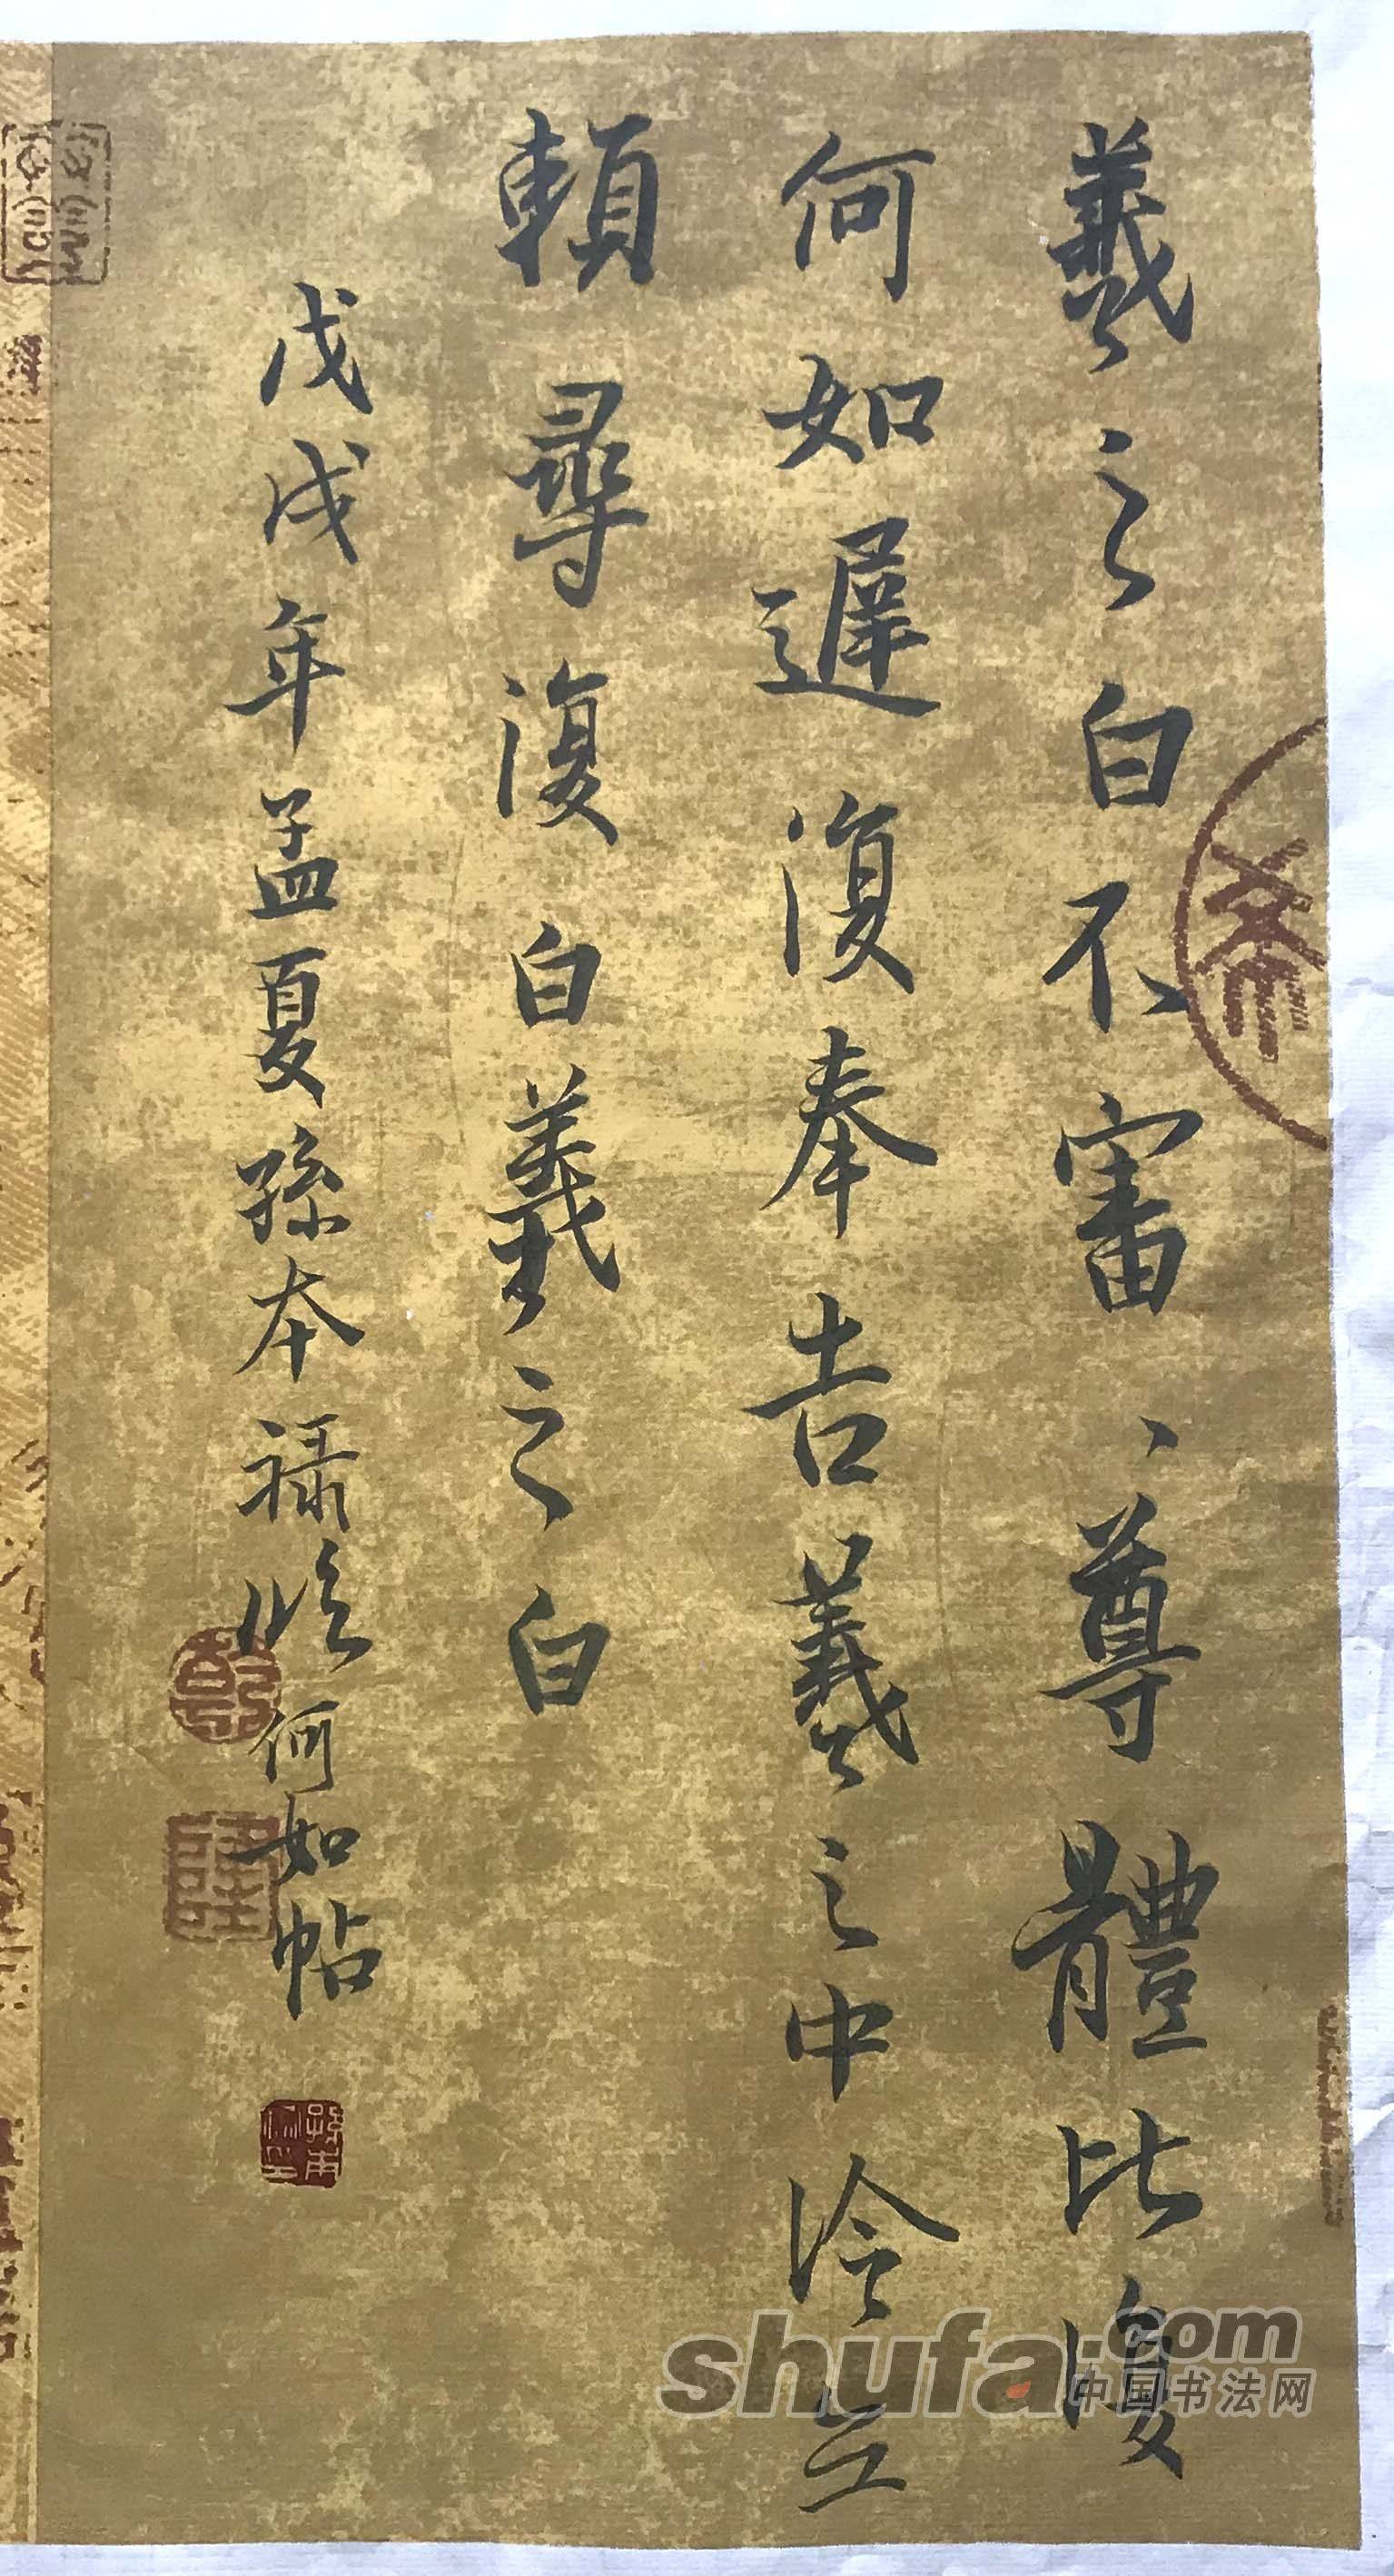 羲之白不審、尊體比復
何如遲復奉告羲之中冷無
賴尋復白羲之白
戊戌年孟夏孫本祿临何如帖
shufa.com
中国书法网